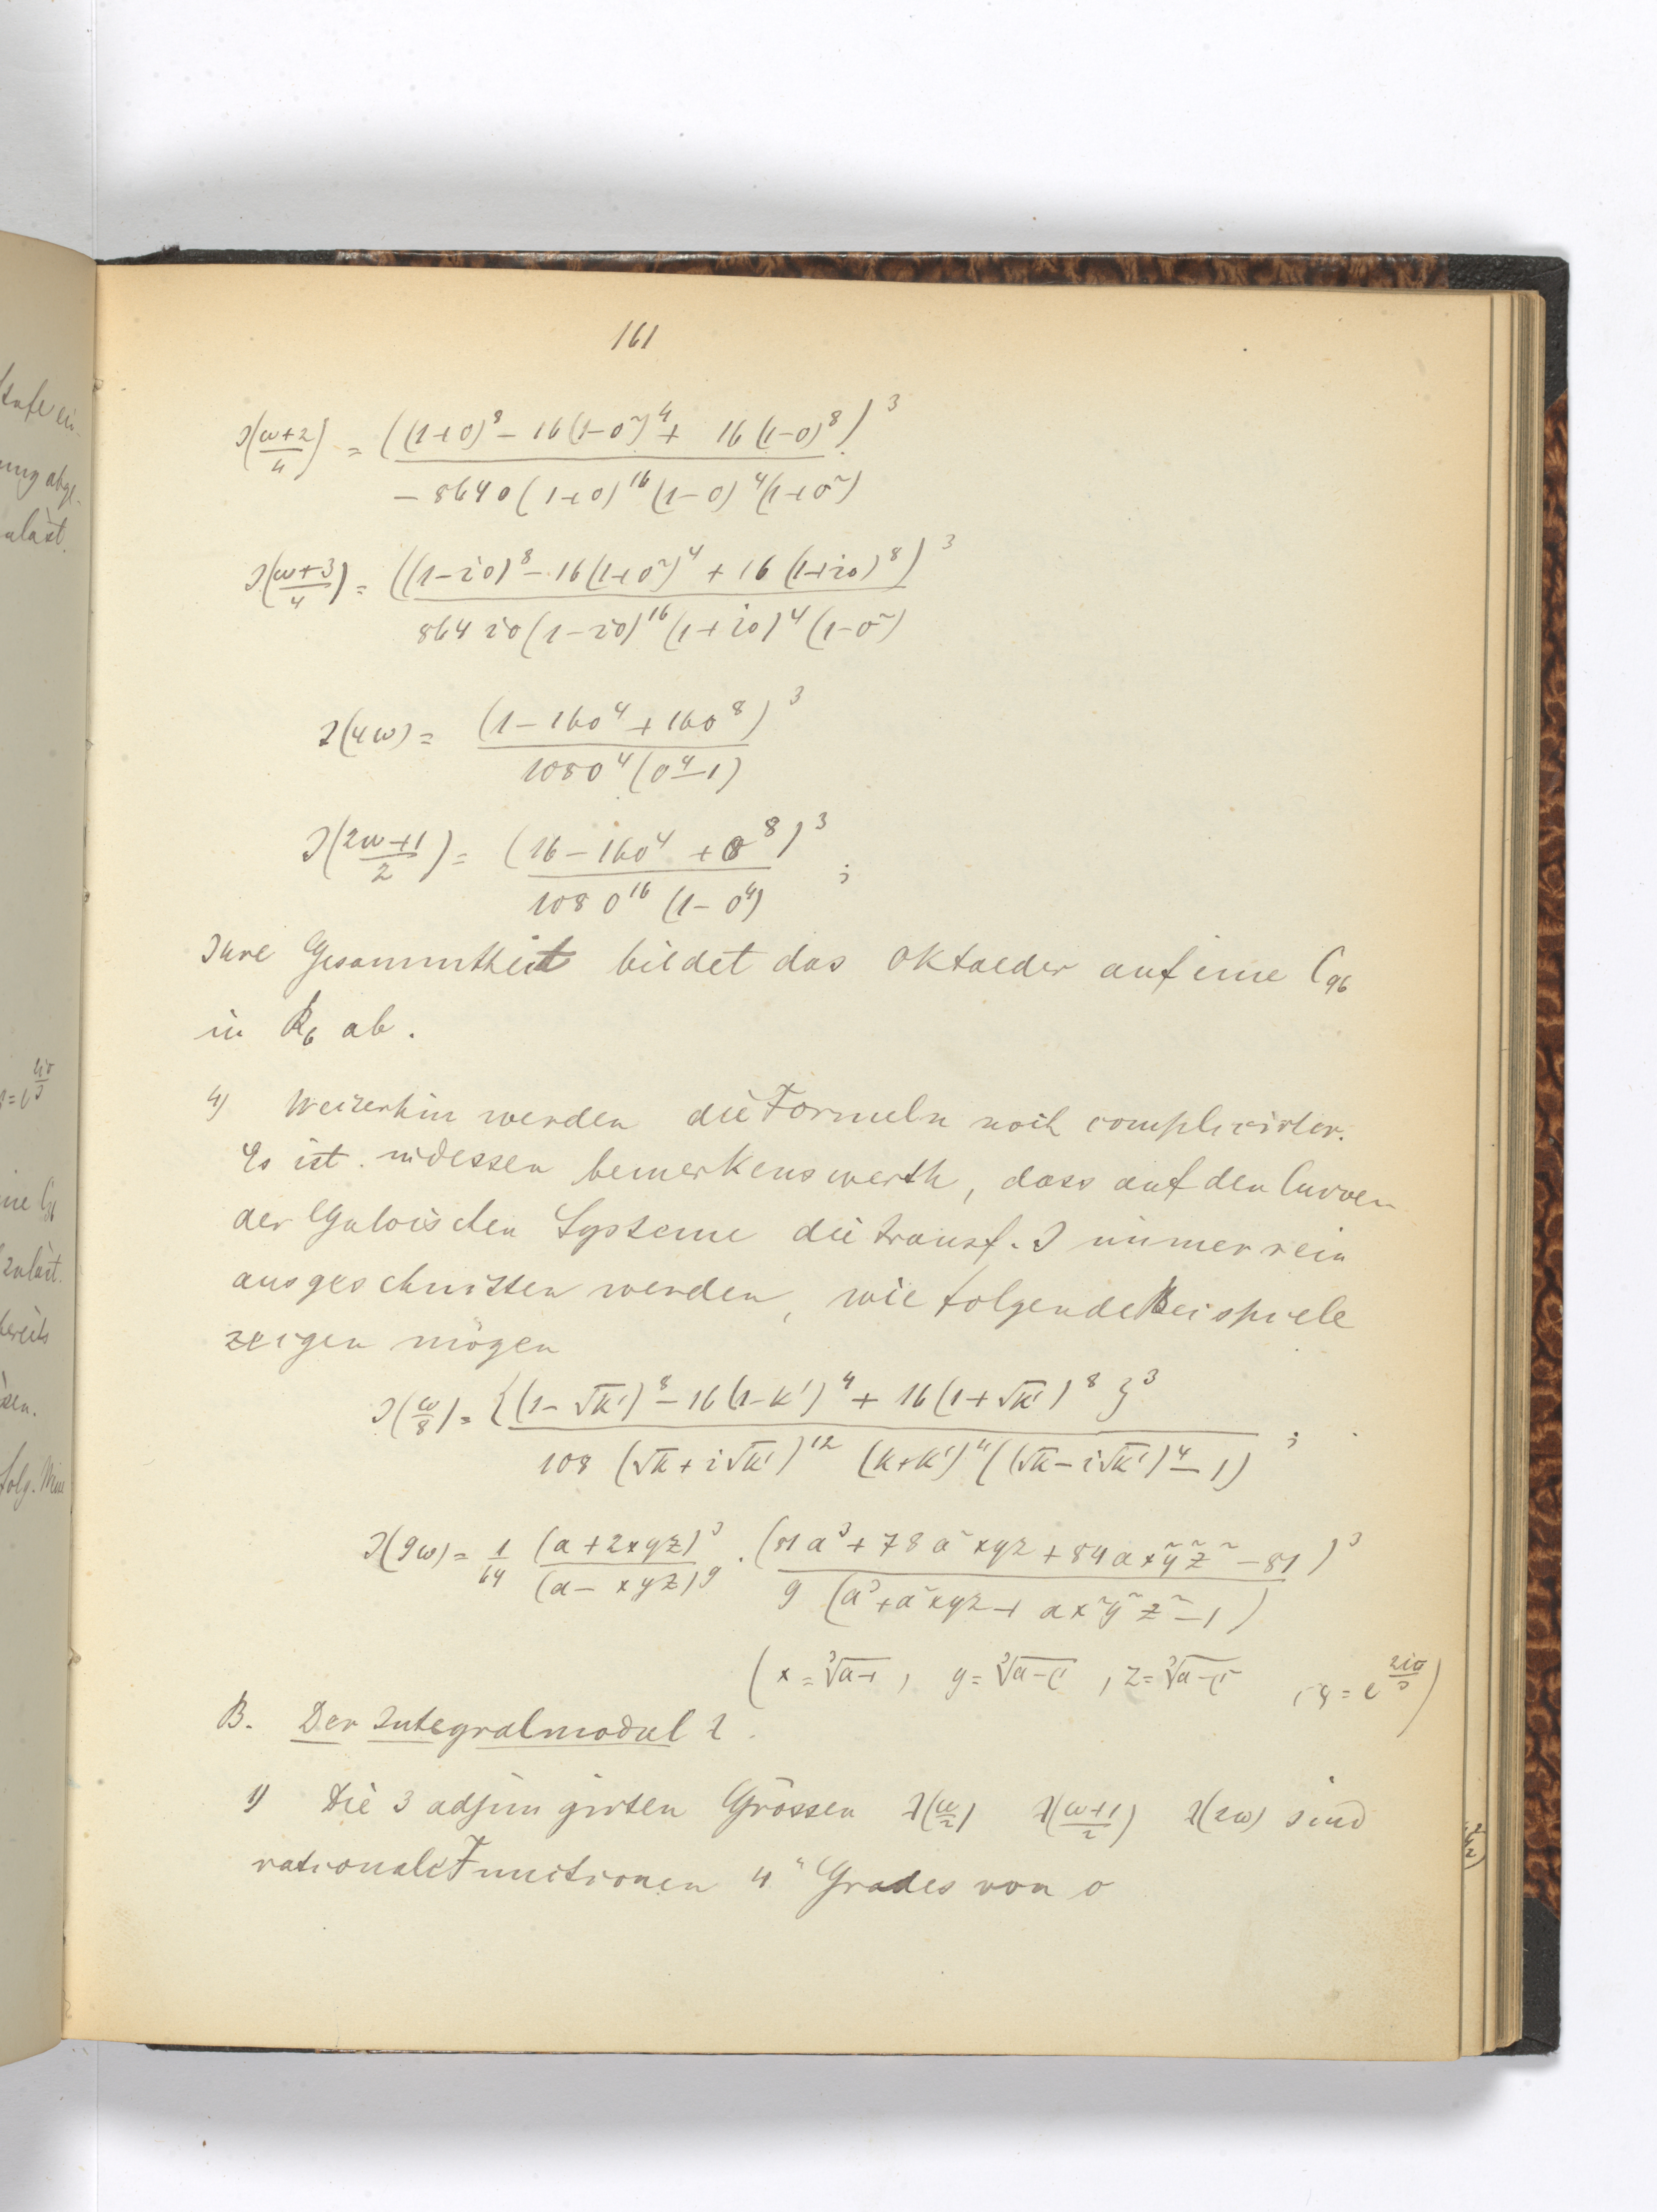 161
J(\frac{ω+2}{4}) = \frac{((1+o)^8 - 16(1-o^2)^4 + 16(1-o)^8)^3}{-864 o (1+o)^{16} (1-o)^4 (1+o^2)}
J(\frac{ω+3}{4}) = \frac{((1-io)^8 - 16(1+o^2)^4 + 16(1+io)^8)^3}{864 io (1-io)^{16} (1+io)^4 (1-o^2)}
J(4ω) = \frac{(1-16o^4+16o^8)^3}{108 o^4 (o^4-1)}
J(\frac{2ω+1}{2}) = \frac{(16-16o^4+o^8)^3}{108 o^{16} (1-o^4)} ;
Ihre Gesammtheit bildet das Oktaeder auf eine C_{96}
in R_6 ab.
4) Weiterhin werden die Formeln noch complicirter.
Es ist indessen bemerkenswerth, dass auf den Curven
der Galoischen Systeme die transf. J immer rein
ausgeschnitten werden, wie folgende Beispiele
zeigen mögen
J(\frac{ω}{8}) = \frac{{(1-√k')^8 - 16(1-k')^4 + 16(1+√k')^8}^3}{108 (√k+i√k')^{12} (k+k')^4 ((√k-i√k')^4-1)} ;
J(9ω) = \frac{1}{64} \frac{(a+2xyz)^3}{(a-xyz)^9} · \frac{(81a^3+78a^2xyz+84ax^2y^2z^2-81)^3}{9(a^3+a^2xyz+ax^2y^2z^2-1)}
(x=\sqrt[3]{a-1}, y=\sqrt[3]{a-ρ}, z=\sqrt[3]{a-ρ^2}, ρ=e^{\frac{2iπ}{3}})
B. Der Integralmodul λ.
1) Die 3 adjungirten Grössen λ(\frac{ω}{2}) λ(\frac{ω+1}{2}) λ(2ω) sind
rationale Functionen 4^n Grades von o